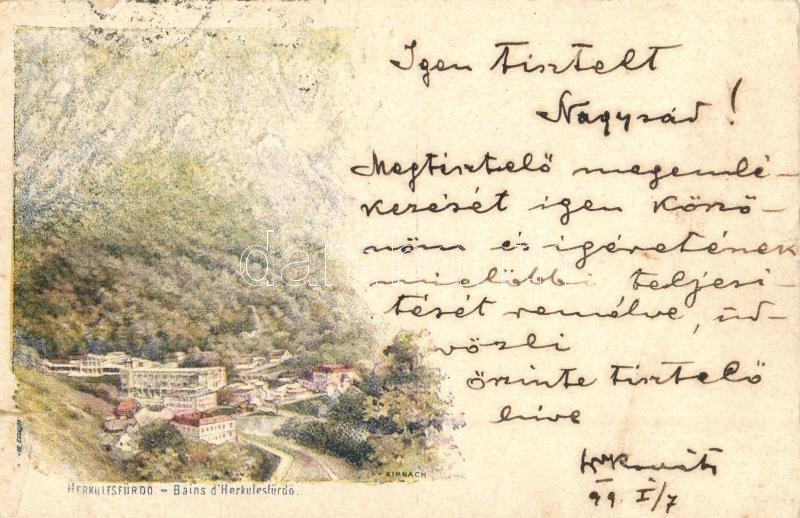 Igen tisztelt
Nagysád!
Megtisztelő megemlé-
kezését igen köszö-
nöm és igéretének
mielőbbi teljesi-
tését remélve, üd-
vözli
őszinte tisztelő
hive
99. I/7
KIMNACH
HERKULESFÜRDŐ. – Bains d'Herkulesfürdő.